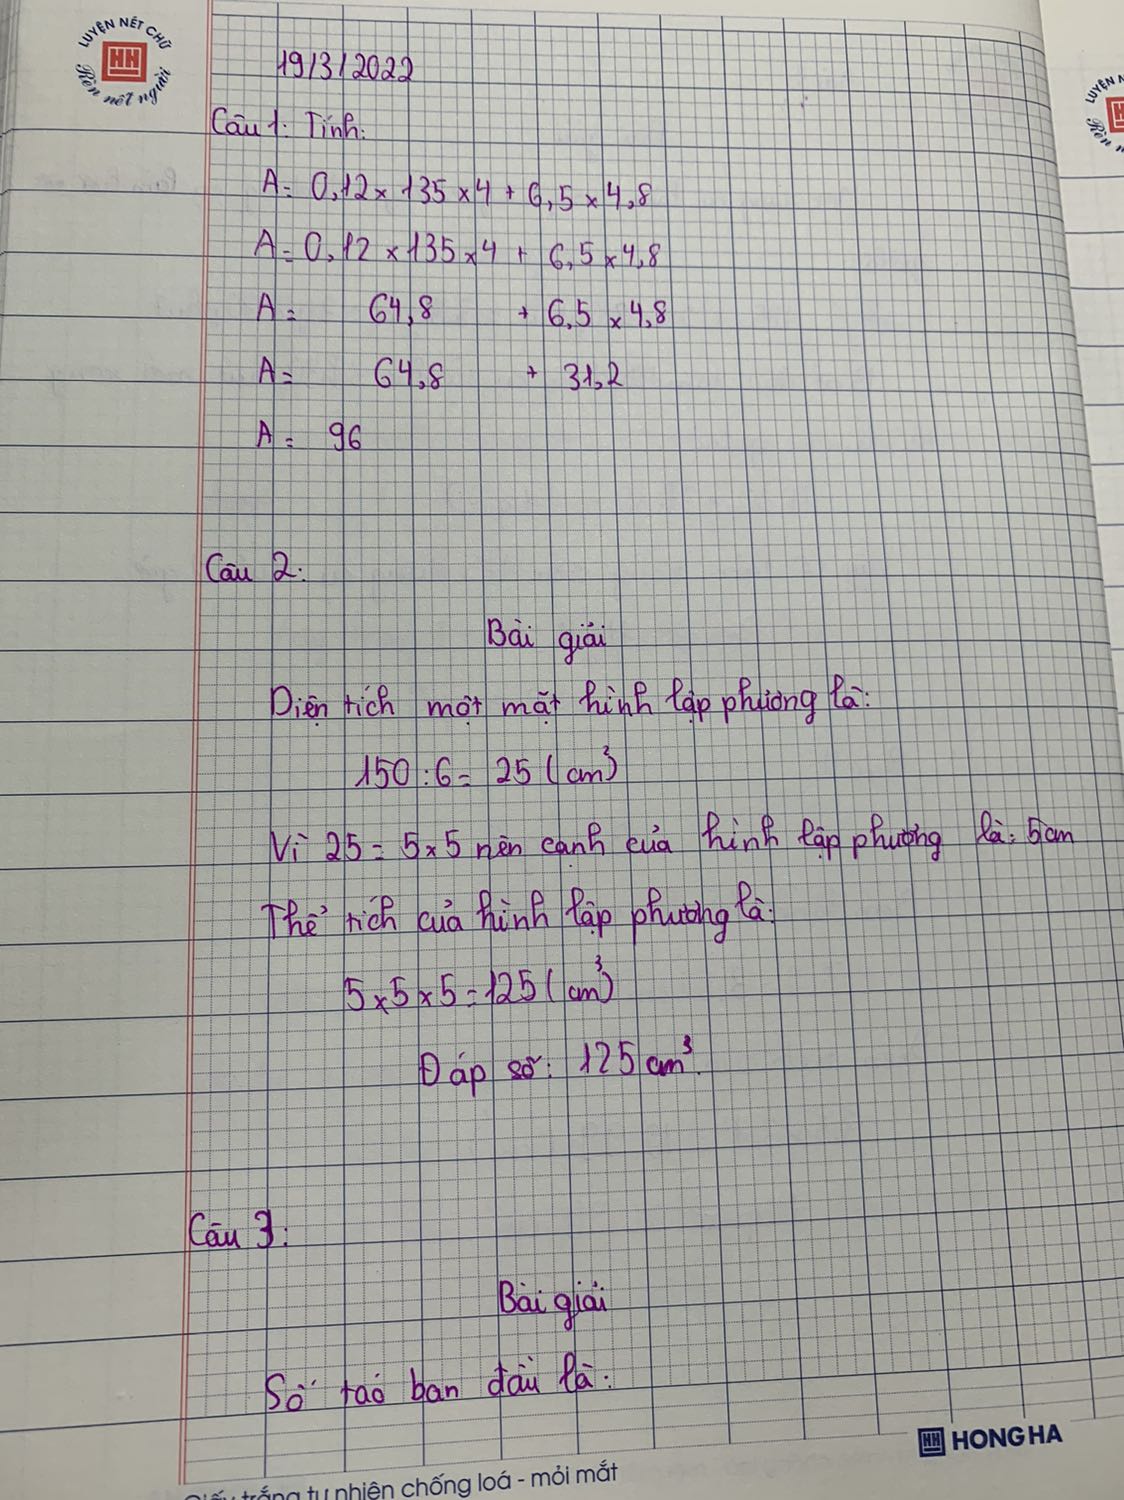 LUYỆN NÉT CHỮ
HH
Rèn nết người
19/3/2022
Câu 1: Tính:
A = 0,12 x 135 x 4 + 6,5 x 4,8
A = 0,12 x 135 x 4 + 6,5 x 4,8
A = 64,8 + 6,5 x 4,8
A = 64,8 + 31,2
A = 96
Câu 2:
Bài giải
Diện tích một mặt hình lập phương là:
150 : 6 = 25 (cm³)
Vì 25 = 5 x 5 nên cạnh của hình lập phương là: 5cm
Thể tích của hình lập phương là:
5 x 5 x 5 = 125 (cm³)
Đáp số: 125 cm³.
Câu 3:
Bài giải
Số táo ban đầu là:
HH HONG HA
Giấy trắng tự nhiên chống loá - mỏi mắt